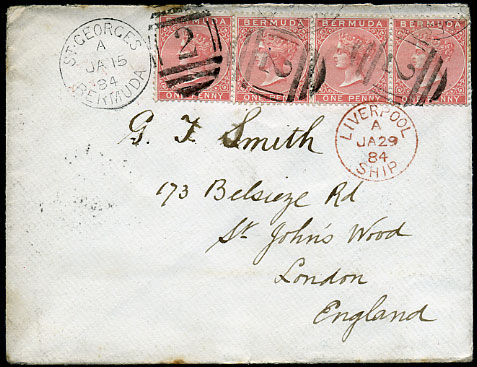 ST. GEORGES
A
JA 15
84
BERMUDA
2
BERMUDA
ONE PENNY
2
BERMUDA
ONE PENNY
BERMUDA
ONE PENNY
2
BERMUDA
ONE PENNY
LIVERPOOL
A
JA 29
84
SHIP
G. F. Smith
173 Belsieze Rd
St John's Wood
London
England